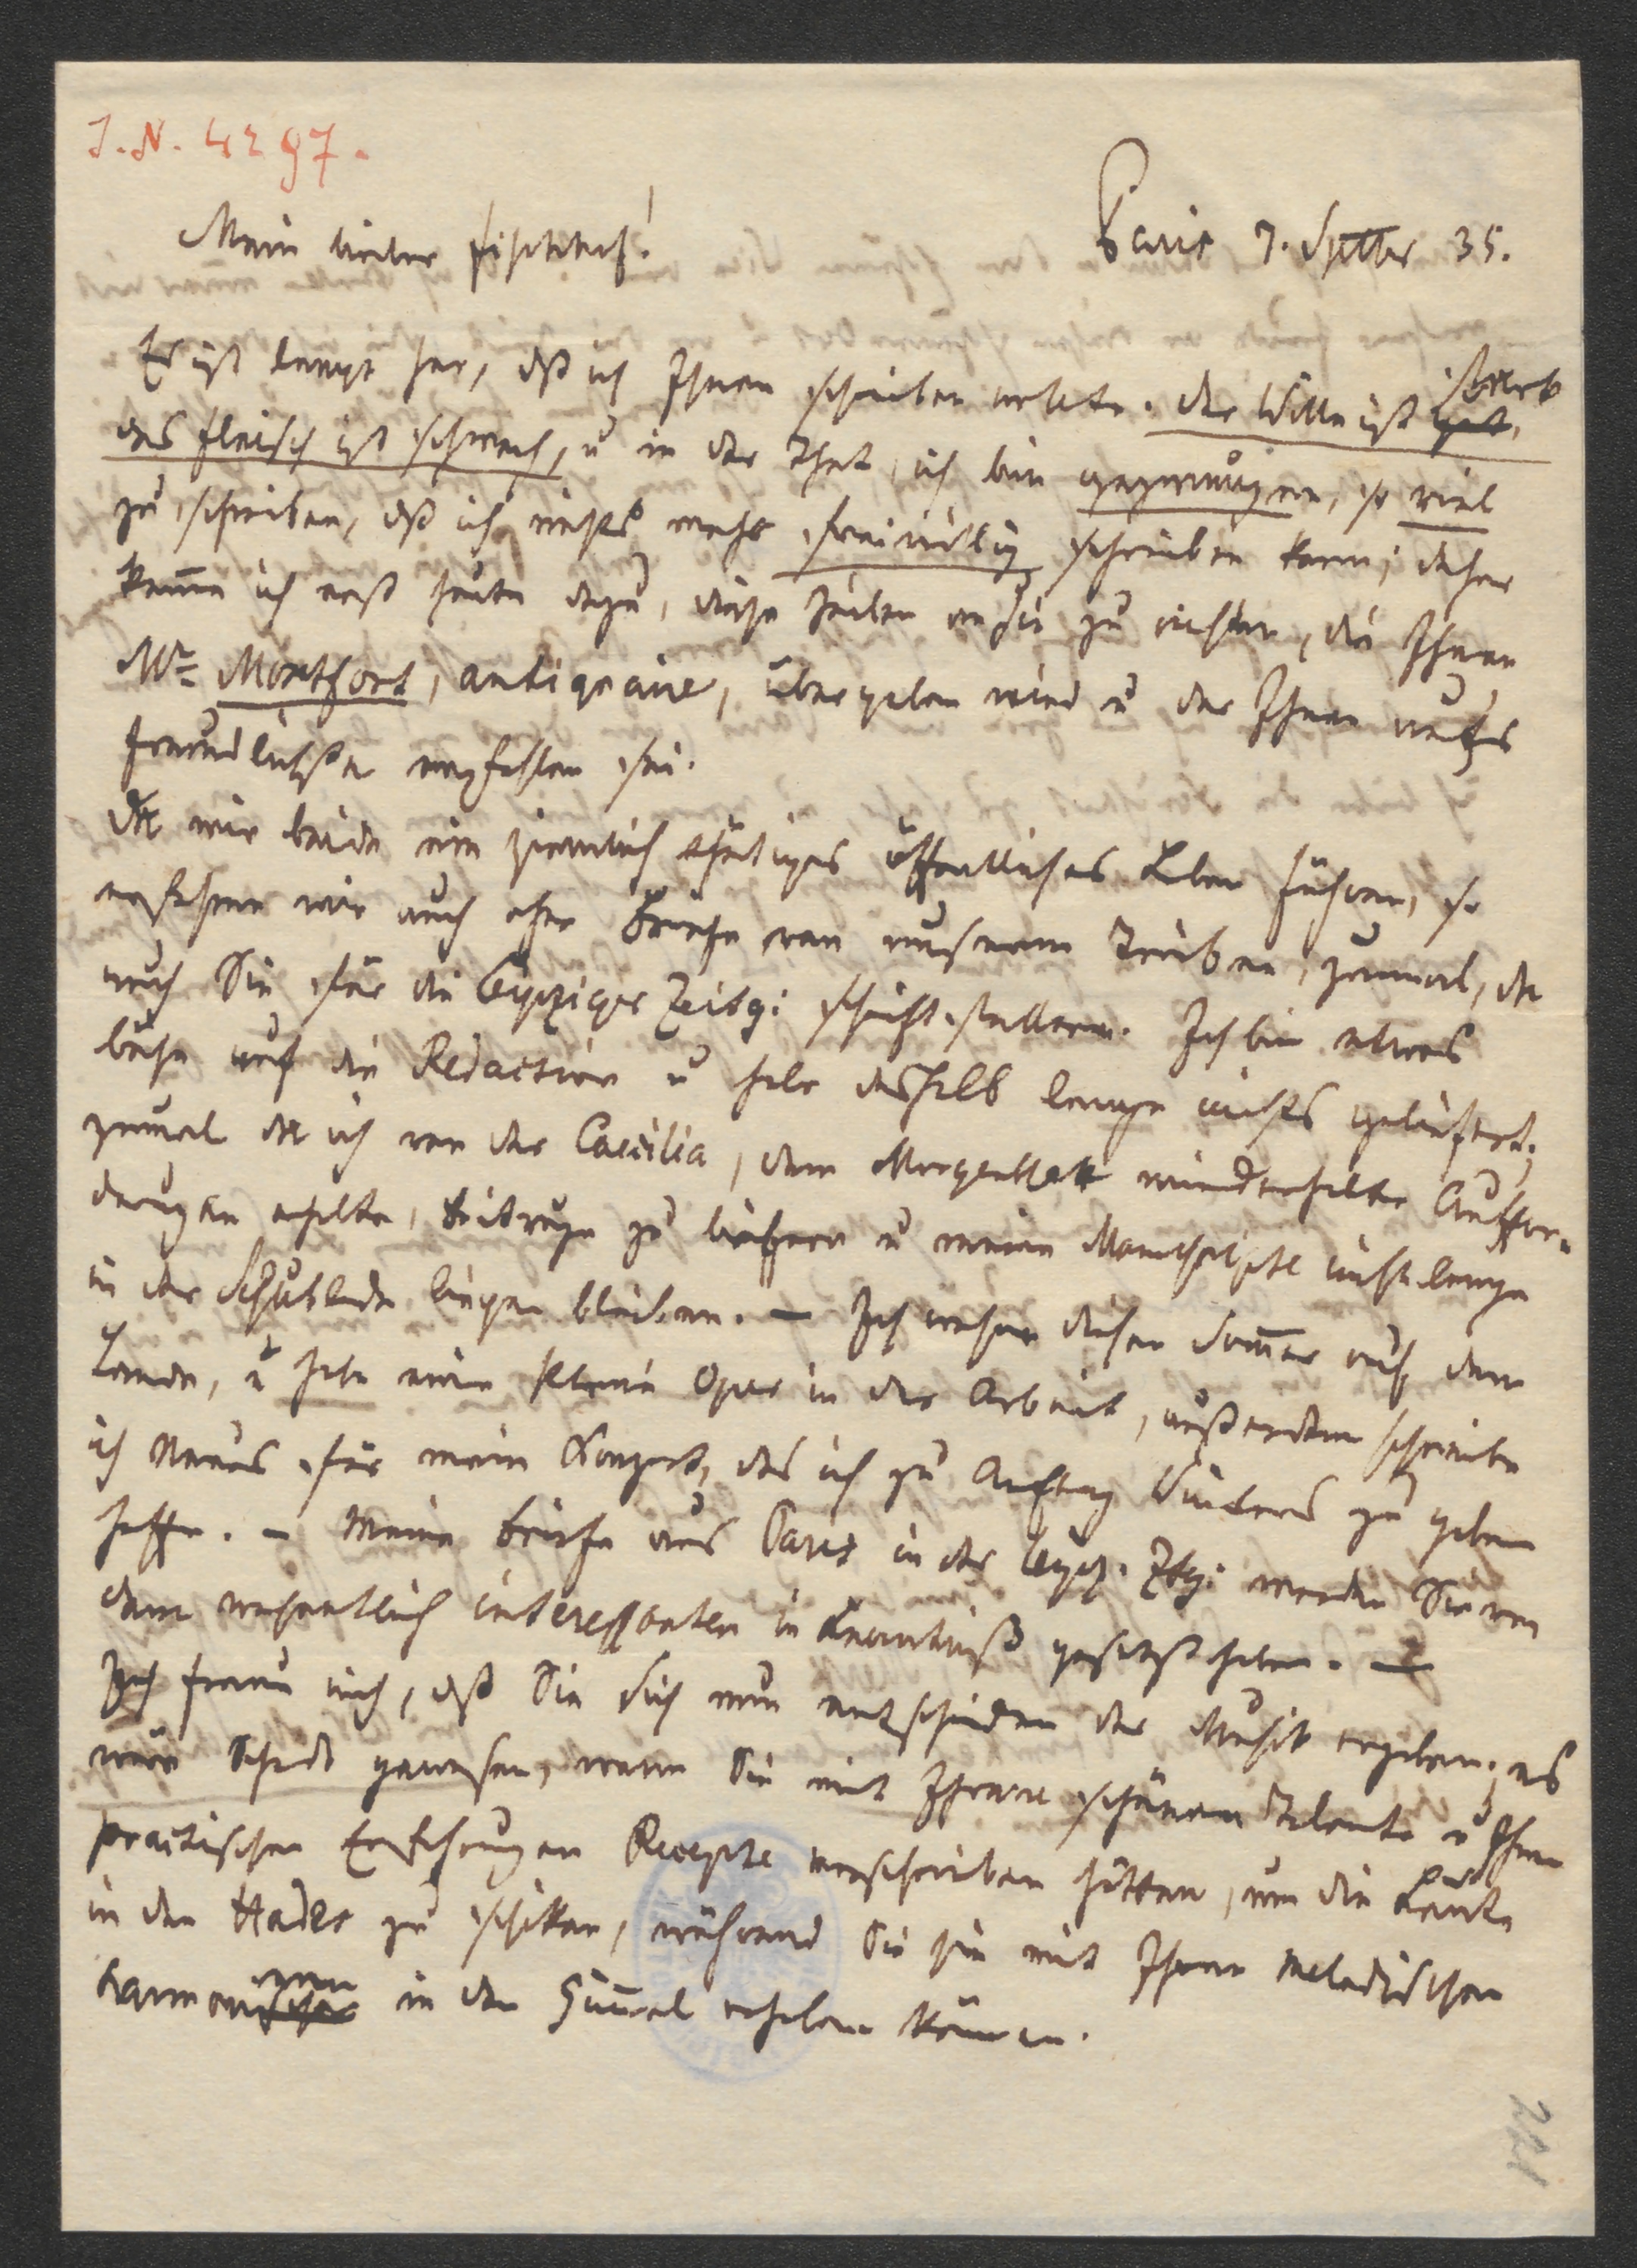 J. N. 4297.
Mein lieber Fischhof!
Paris 7. Septbr 35.
Es ist lange her, daß ich Ihnen schreiben wollte. Der Wille ist gut, stark
das Fleisch ist schwach, u in der That, ich bin gezwungen, so viel
zu schreiben, daß ich nichts mehr freiwillig schreiben kann; daher
kom̄e ich erst heute dazu, diese Zeilen an Sie zu richten, die Ihnen
Mr Montfort, antiquaire, übergeben wird u der Ihnen aufs
freundlichste empfohlen sei.
Da wir beide ein ziemlich thätiges öffentliches Leben führen, so
erfahren wir auch ohne Briefe von unserem Treiben, zumal, da
auch Sie für die Leipziger Zeitg: schriftstellern. Ich bin etwas
böse auf die Redaction u habe deshalb lange nichts geliefert;
zumal da ich von der Caecilia, dem Morgenblatt wiederholte Auffor-
derungen erhalte, Beiträge zu liefern u meine Manuscripte nicht lange
in der Schublade liegen bleiben. — Ich wohne diesen Som̄er auf dem
Lande, u habe eine kleine Oper in der Arbeit, außerdem schreibe
ich Neues für mein Konzert, das ich zu Anfang Winters zu geben
hoffe. — Meine Briefe aus Paris in der Leipz. Ztg: werden Sie von
dem wesentlich interessanten in Kenntniß gesetzt haben. —
Ich freue mich, daß Sie sich nun entschieden der Musik ergeben; es
wäre Schade gewesen, wenn Sie mit Ihrem schönen Talente u Ihren
practischen Erfahrungen Recepte verschrieben hätten, um die Leute
in den Hades zu schikken, während Sie sie mit Ihren melodischen
Harmonien in den Him̄el erheben können.
221